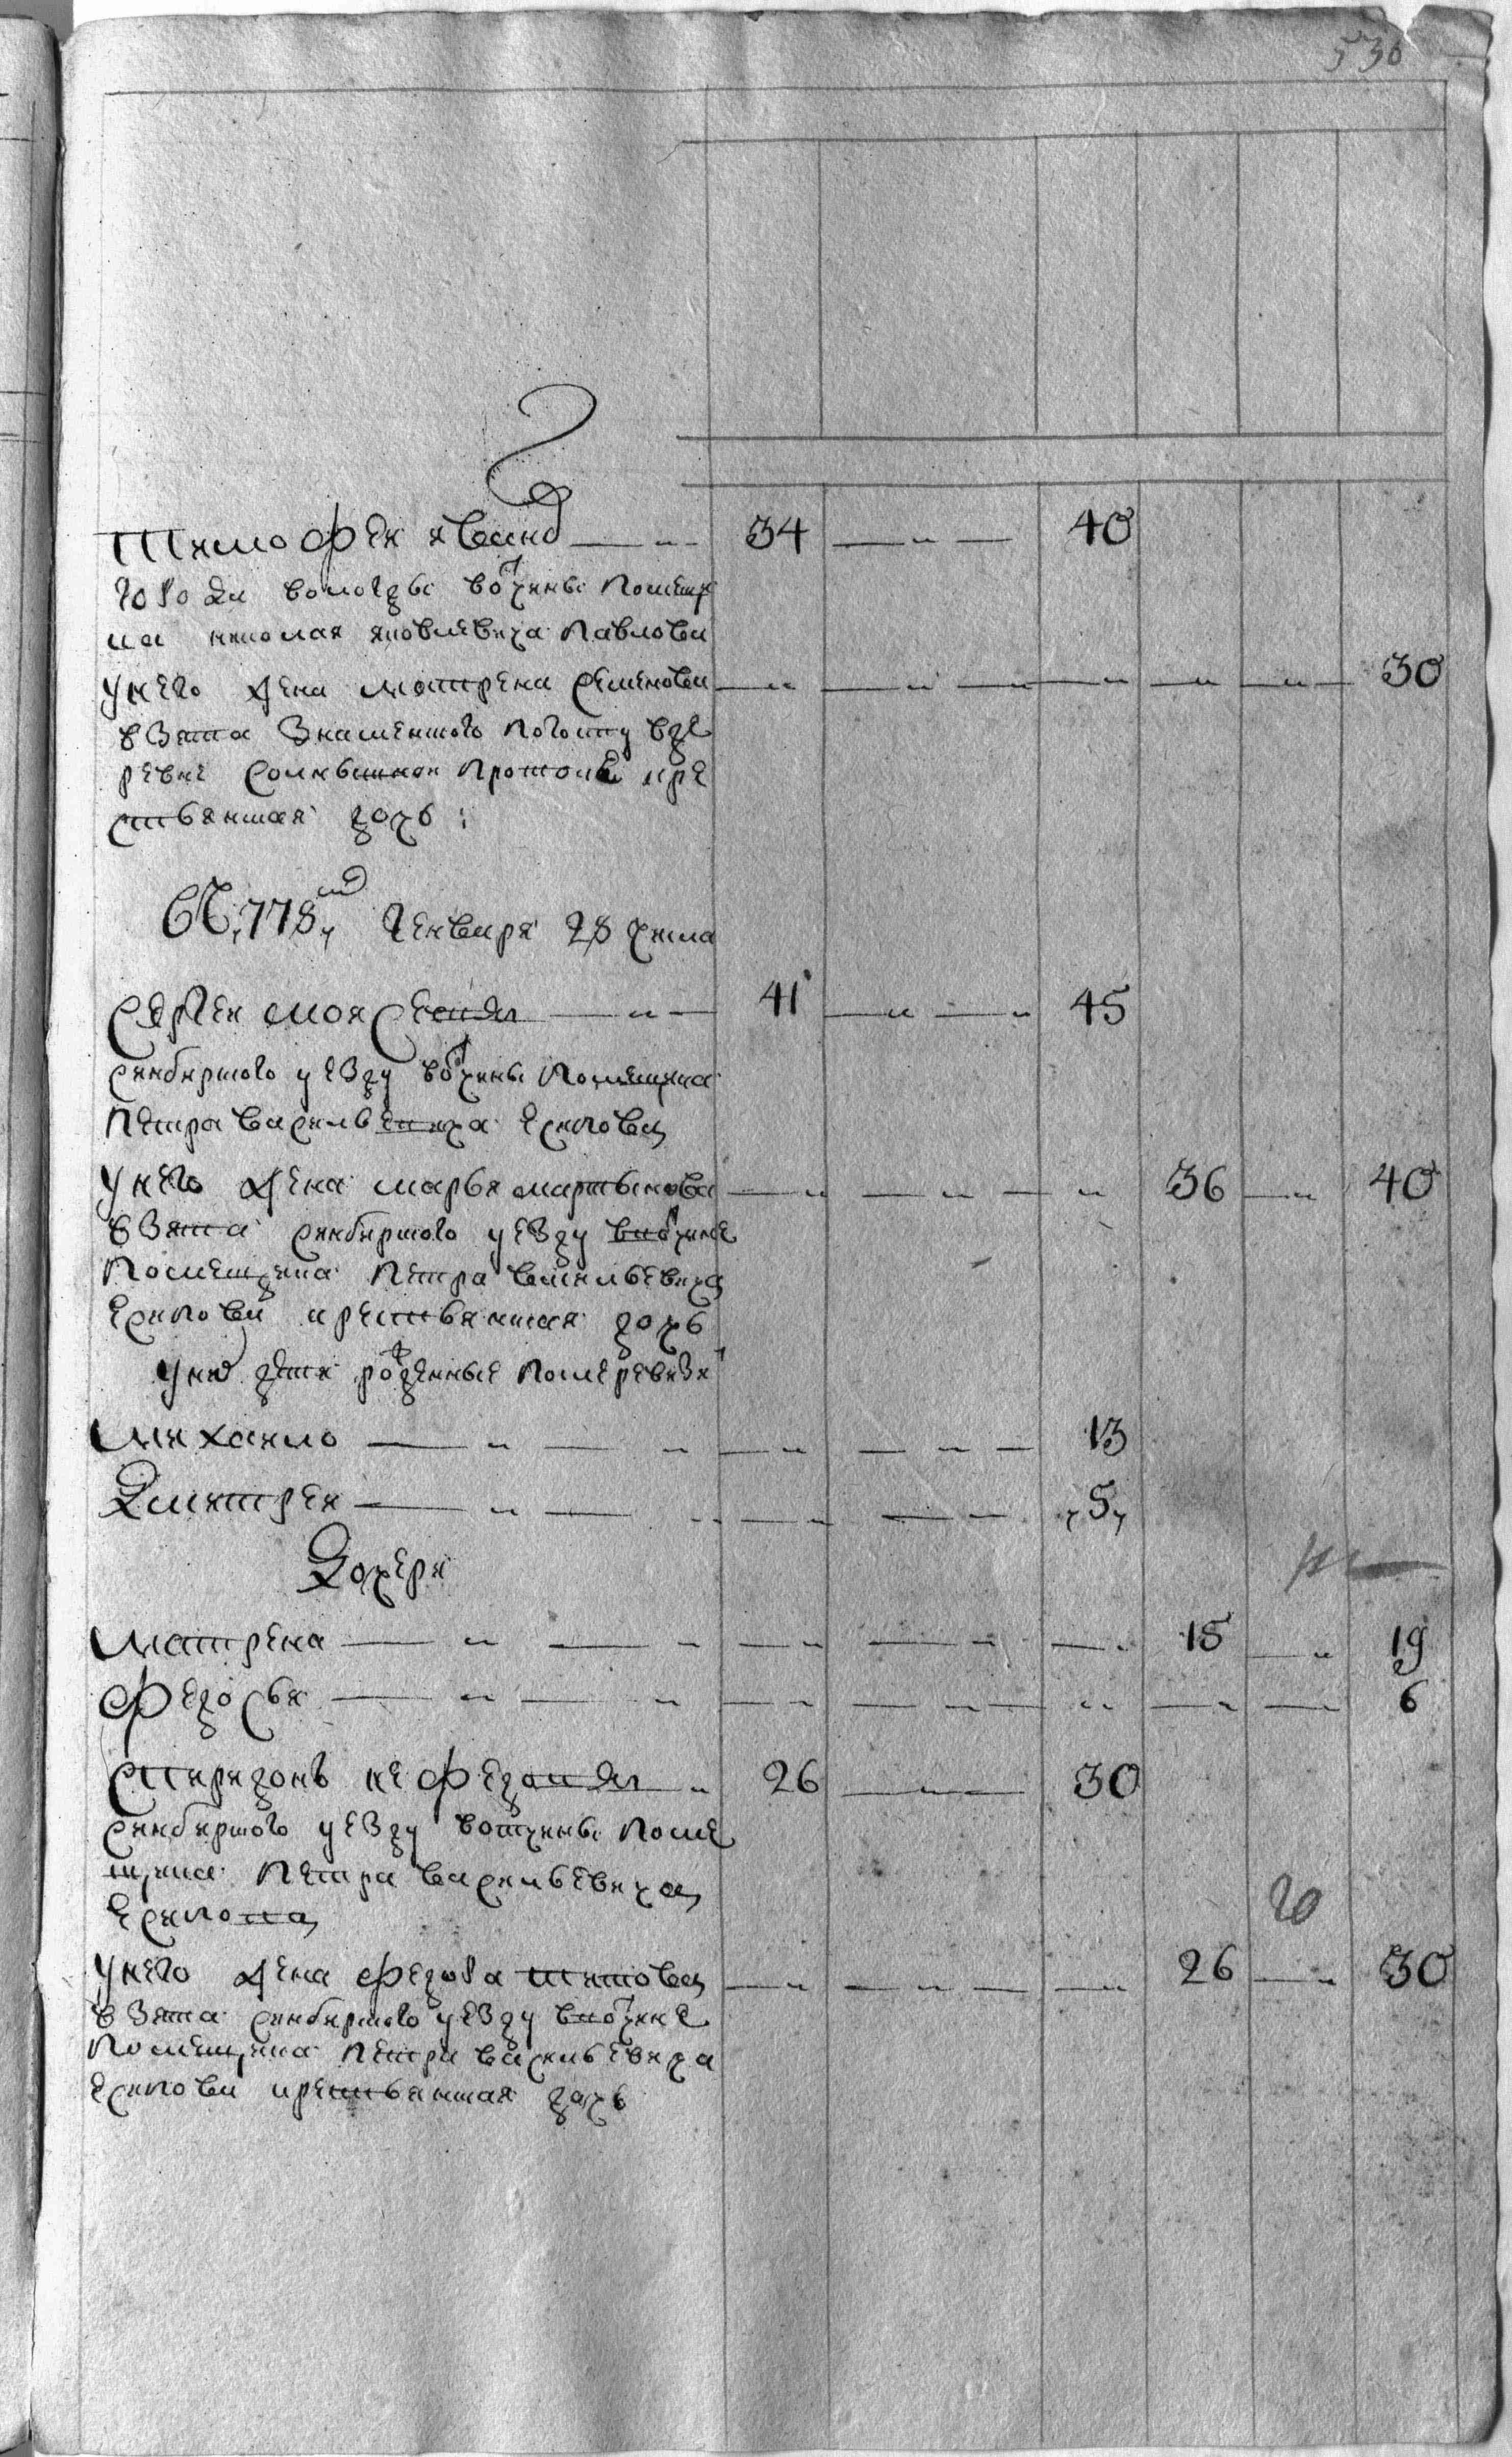 536
Тимофей Иванов 34 40
города Вологды вотчины помещи
ка Николая Яковлевича Павлова
у него жена Матрена Семенова 30
взята Знаменского погосту в де
ревне кре
стьянская дочь
778 Генваря 28 числа
Сергей Моисеевъ 41 45
Синбирского уезду вотчины помещика
Петра Васильевича Есипова
у него жена Марья Мартынова 36 40
взята Синбирского уезду в вотчине
помещика Петра Васильевича
Есипова крестьянская дочь
у них дети рожденные после ревизи
Михайло 13
Дмитрей 5
Дочери
Матрена 15 19
Федосья 6
Спиридонъ Нефедовъ 26 30
Синбирского уезду вотчины поме
щика Петра Васильевича
Есипова
у него жена Федора Титова 26 30
взята Синбирского уезду в вотчине
помещика Петра Васильевича
Есипова крестьянская дочь